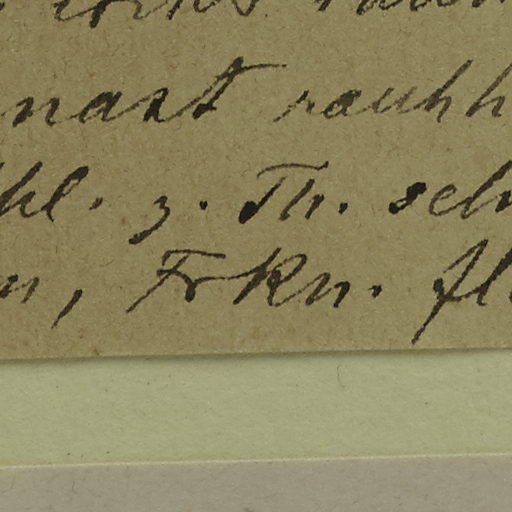 nast rauhh
hl. z. Th. seh
n, Frkn. fl